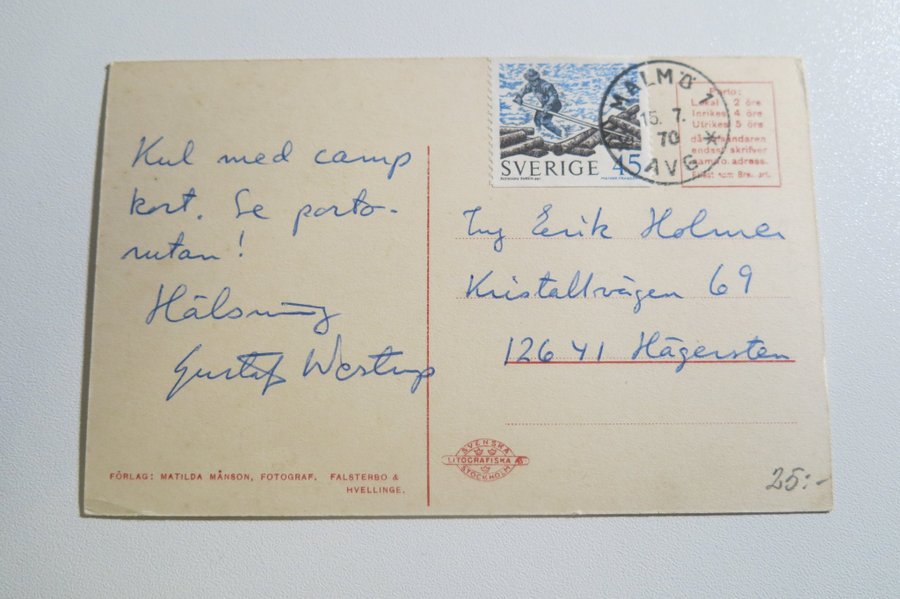 Kul med camp
kort. Se porto-
rutan!
Hälsning
Gustaf Westrup
FÖRLAG: MATILDA MÅNSON, FOTOGRAF, FALSTERBO &
HVELLINGE.
SVERIGE 45
MALMÖ 1
15. 7.
70 *
AVG
Porto:
Lokal 2 öre
Inrikes 4 öre
Utrikes 5 öre
då afsändaren
endast skrifver
adress.
Ing Erik Holmer
Kristallvägen 69
126 41 Hägersten
SVENSKA
LITOGRAFISKA AB
STOCKHOLM
25:-